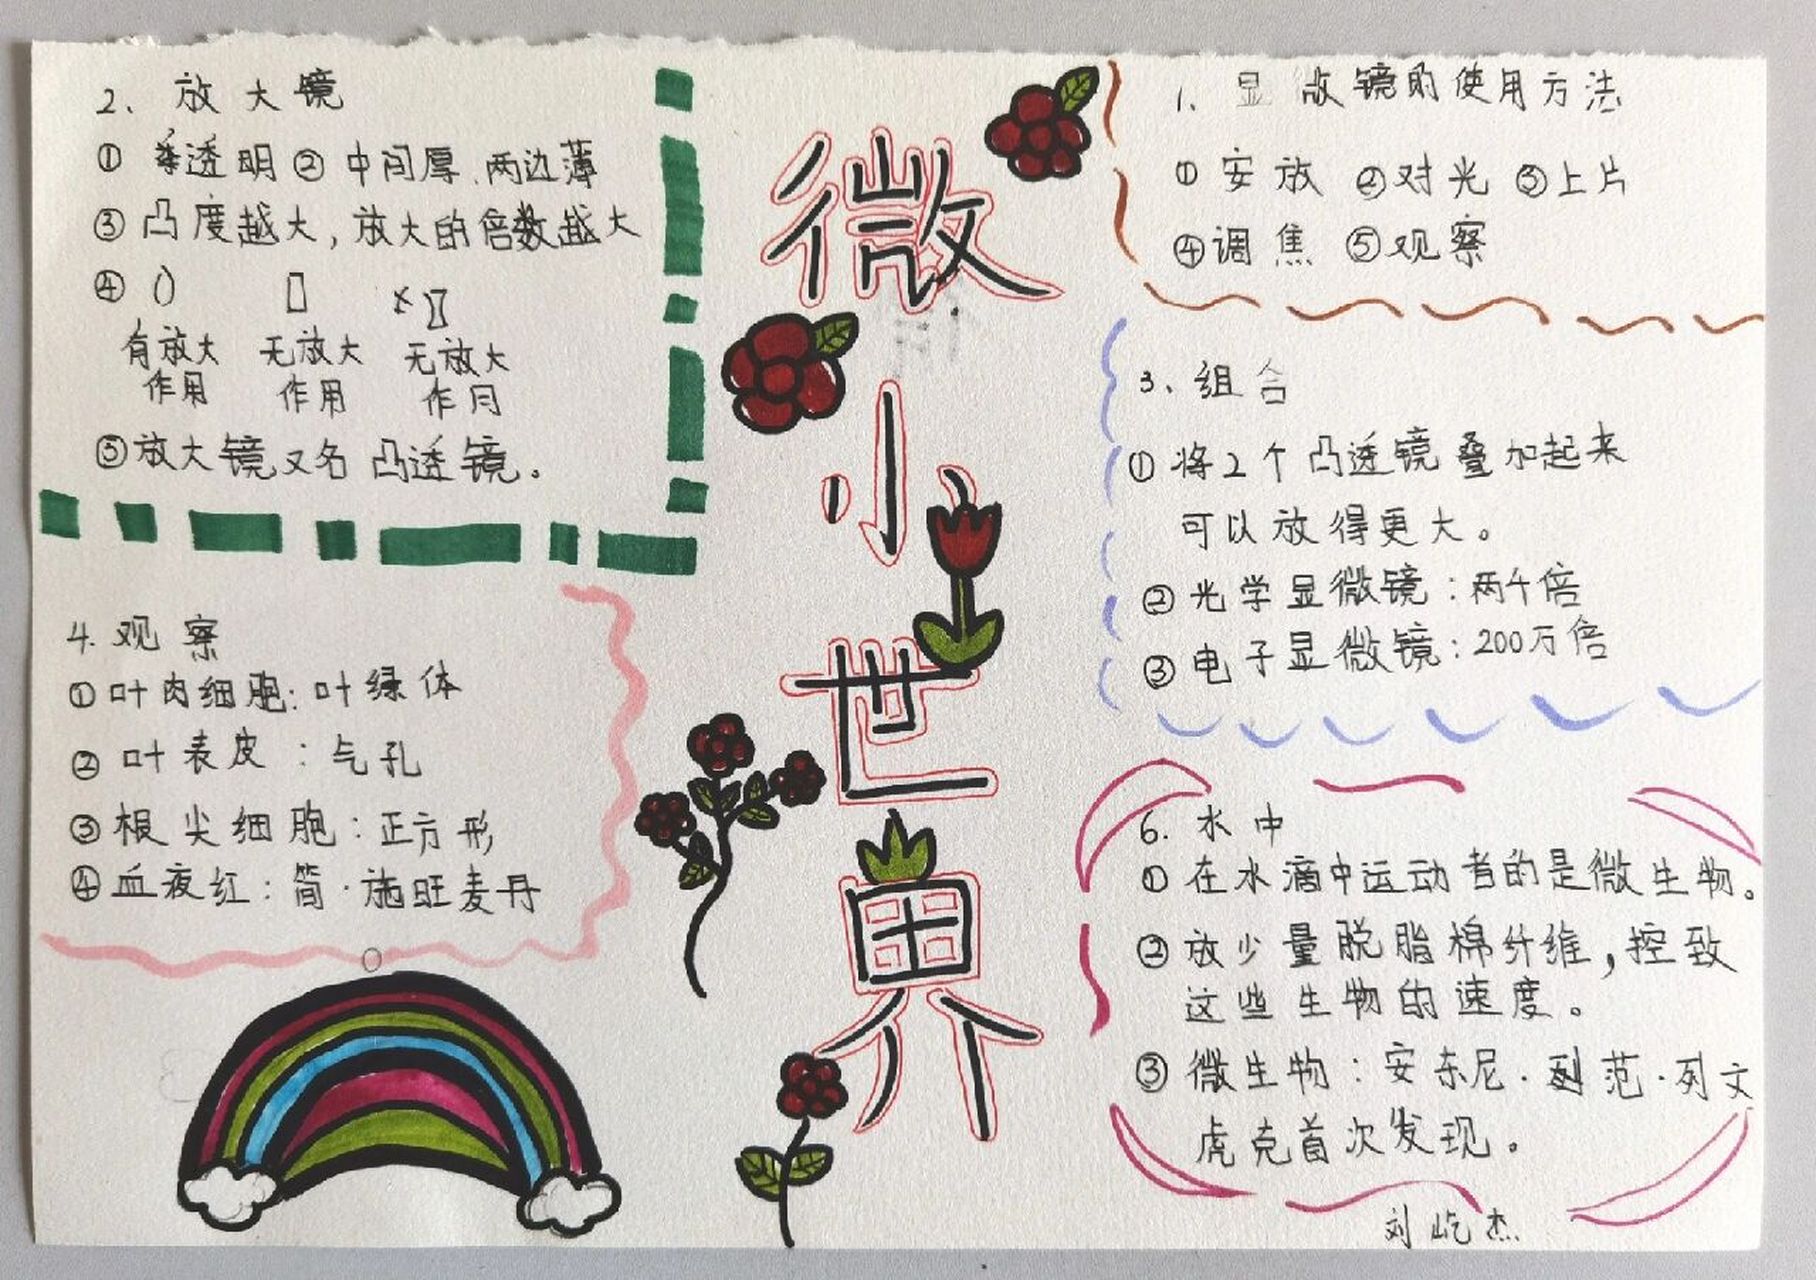 微小世界
1. 显微镜的使用方法
①安放 ②对光 ③上片
④调焦 ⑤观察
2. 放大镜
①透明②中间厚.两边薄
③凸度越大,放大的倍数越大
④
有放大 无放大 无放大
作用 作用 作用
⑤放大镜又名凸透镜。
3. 组合
①将2个凸透镜叠加起来
可以放得更大。
②光学显微镜:两千倍
③电子显微镜:200万倍
4. 观察
①叶肉细胞:叶绿体
②叶表皮:气孔
③根尖细胞:正方形
④血夜红:简·施旺麦丹
6. 水中
①在水滴中运动者的是微生物。
②放少量脱脂棉纤维,控致
这些生物的速度。
③微生物:安东尼·范·列文
虎克首次发现。
刘屹杰